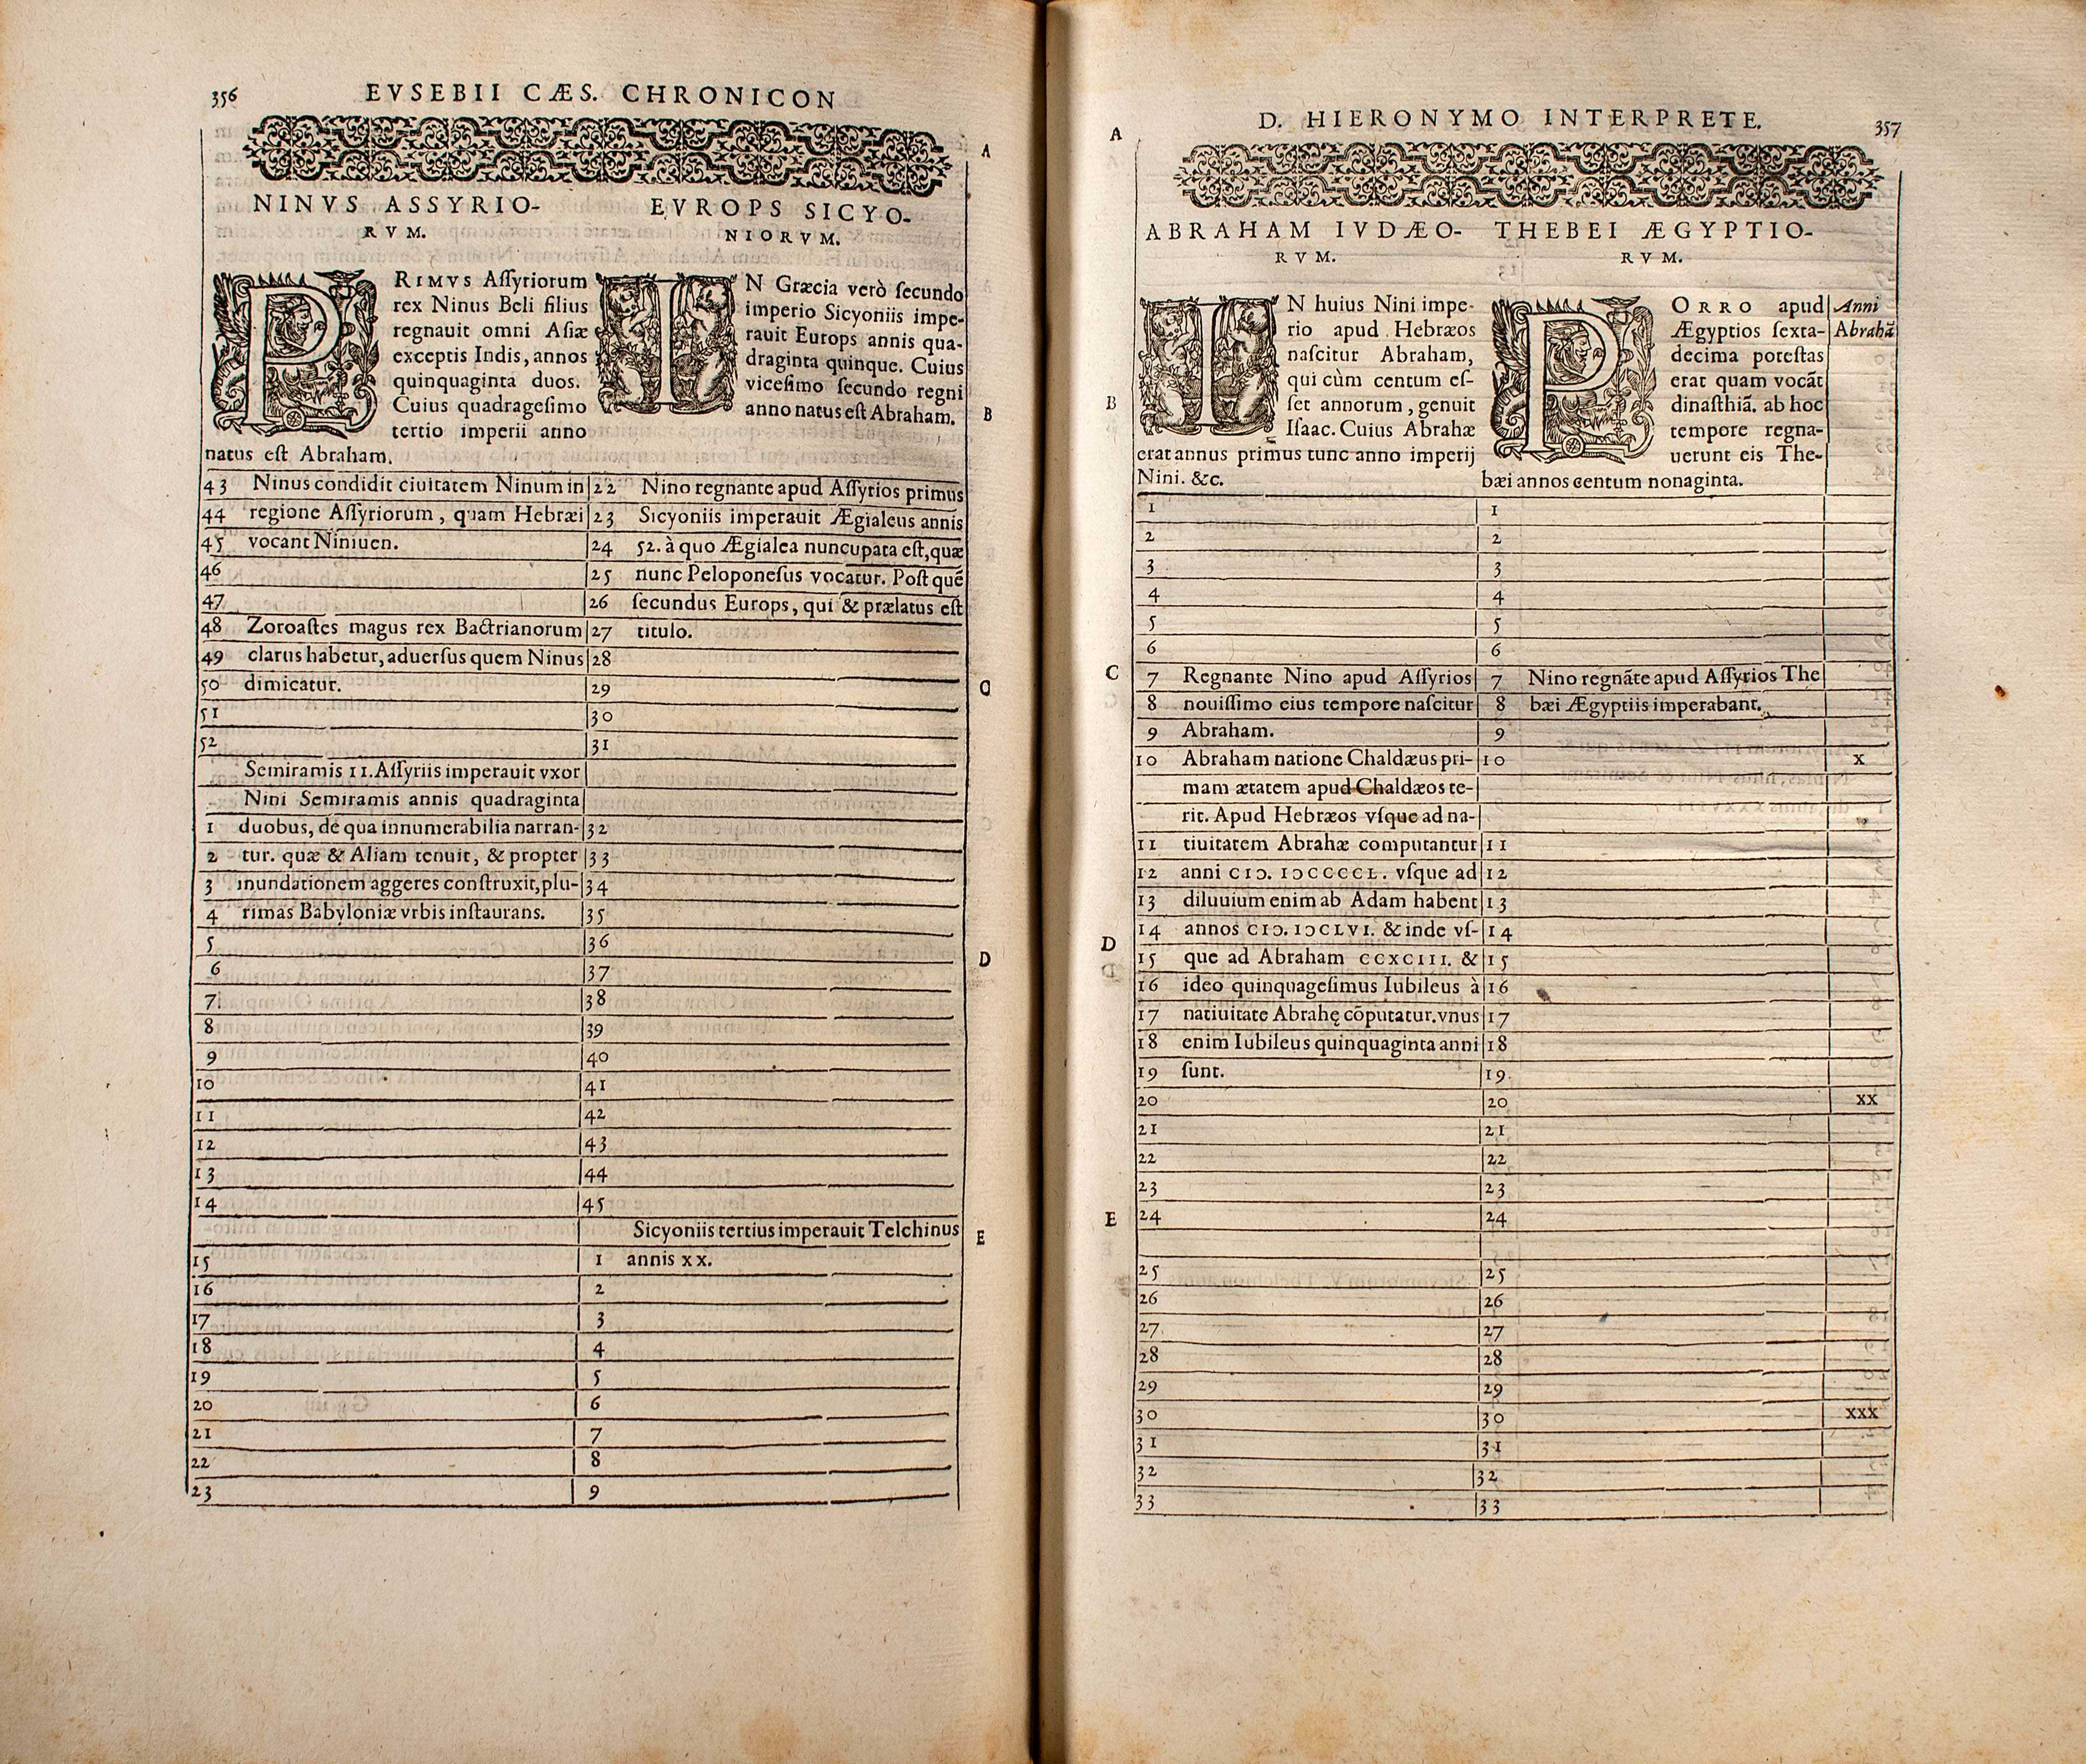 356
EVSEBII CÆS. CHRONICON
A
NINVS ASSYRIO-
RVM.
PRIMVS Aſſyriorum
rex Ninus Beli filius
regnauit omni Aſiæ
exceptis Indis, annos
quinquaginta duos.
Cuius quadrageſimo
tertio imperii anno
natus eſt Abraham.
EVROPS SICYO-
NIORVM.
IN Græcia verò ſecundo
imperio Sicyoniis impe-
rauit Europs annis qua-
draginta quinque. Cuius
viceſimo ſecundo regni
anno natus eſt Abraham.
B
43 Ninus condidit ciuitatem Ninum in 22 Nino regnante apud Aſſyrios primus
44 regione Aſſyriorum, quam Hebræi 23 Sicyoniis imperauit Ægialeus annis
45 vocant Niniuen. 24 52. à quo Ægialea nuncupata eſt, quæ
46 25 nunc Peloponeſus vocatur. Poſt quẽ
47 26 ſecundus Europs, qui & prælatus eſt
48 Zoroaſtes magus rex Bactrianorum 27 titulo.
49 clarus habetur, aduerſus quem Ninus 28
50 dimicatur. 29
C
51 30
52 31
Semiramis 11. Aſſyriis imperauit vxor
Nini Semiramis annis quadraginta
1 duobus, de qua innumerabilia narran- 32
2 tur. quæ & Aliam tenuit, & propter 33
3 inundationem aggeres conſtruxit, plu- 34
4 rimas Babyloniæ vrbis inſtaurans. 35
5 36
D
6 37
7 38
8 39
9 40
10 41
11 42
12 43
13 44
14 45
Sicyoniis tertius imperauit Telchinus
E
15 1 annis xx.
16 2
17 3
18 4
19 5
20 6
21 7
22 8
23 9
D. HIERONYMO INTERPRETE.
357
A
ABRAHAM IVDÆO-
RVM.
IN huius Nini impe-
rio apud Hebræos
naſcitur Abraham,
qui cùm centum eſ-
ſet annorum, genuit
Iſaac. Cuius Abrahæ
erat annus primus tunc anno imperij
Nini. &c.
THEBEI ÆGYPTIO-
RVM.
PORRO apud
Ægyptios ſexta-
decima poteſtas
erat quam vocãt
dinaſthiã. ab hoc
tempore regna-
uerunt eis The-
bæi annos centum nonaginta.
Anni
Abrahã
B
1 1
2 2
3 3
4 4
5 5
6 6
C
7 Regnante Nino apud Aſſyrios 7 Nino regnãte apud Aſſyrios The
8 nouiſſimo eius tempore naſcitur 8 bæi Ægyptiis imperabant.
9 Abraham. 9
10 Abraham natione Chaldæus pri- 10 X
mam ætatem apud Chaldæos te-
rit. Apud Hebræos vſque ad na-
11 tiuitatem Abrahæ computantur 11
12 anni CIↃ. IↃCCCCL. vſque ad 12
13 diluuium enim ab Adam habent 13
14 annos CIↃ. IↃCLVI. & inde vſ- 14
D
15 que ad Abraham CCXCIII. & 15
16 ideo quinquageſimus Iubileus à 16
17 natiuitate Abrahę cõputatur. vnus 17
18 enim Iubileus quinquaginta anni 18
19 ſunt. 19
20 20 XX
21 21
22 22
23 23
E
24 24
25 25
26 26
27 27
28 28
29 29
30 30 XXX
31 31
32 32
33 33